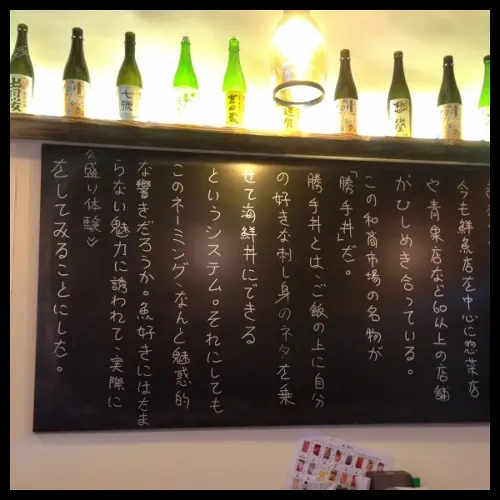 今も鮮魚店を中心に惣菜店
や青果店など60以上の店舗
がひしめき合っている。
この和商市場の名物が
「勝手丼」だ。
勝手丼とは、ご飯の上に自分
の好きな刺し身のネタを乗
せて海鮮丼にできる
というシステム。それにしても
このネーミング、なんと魅惑的
な響きだろうか。魚好きにはたま
らない魅力に誘われて、実際に
盛り体験
をしてみることにした。